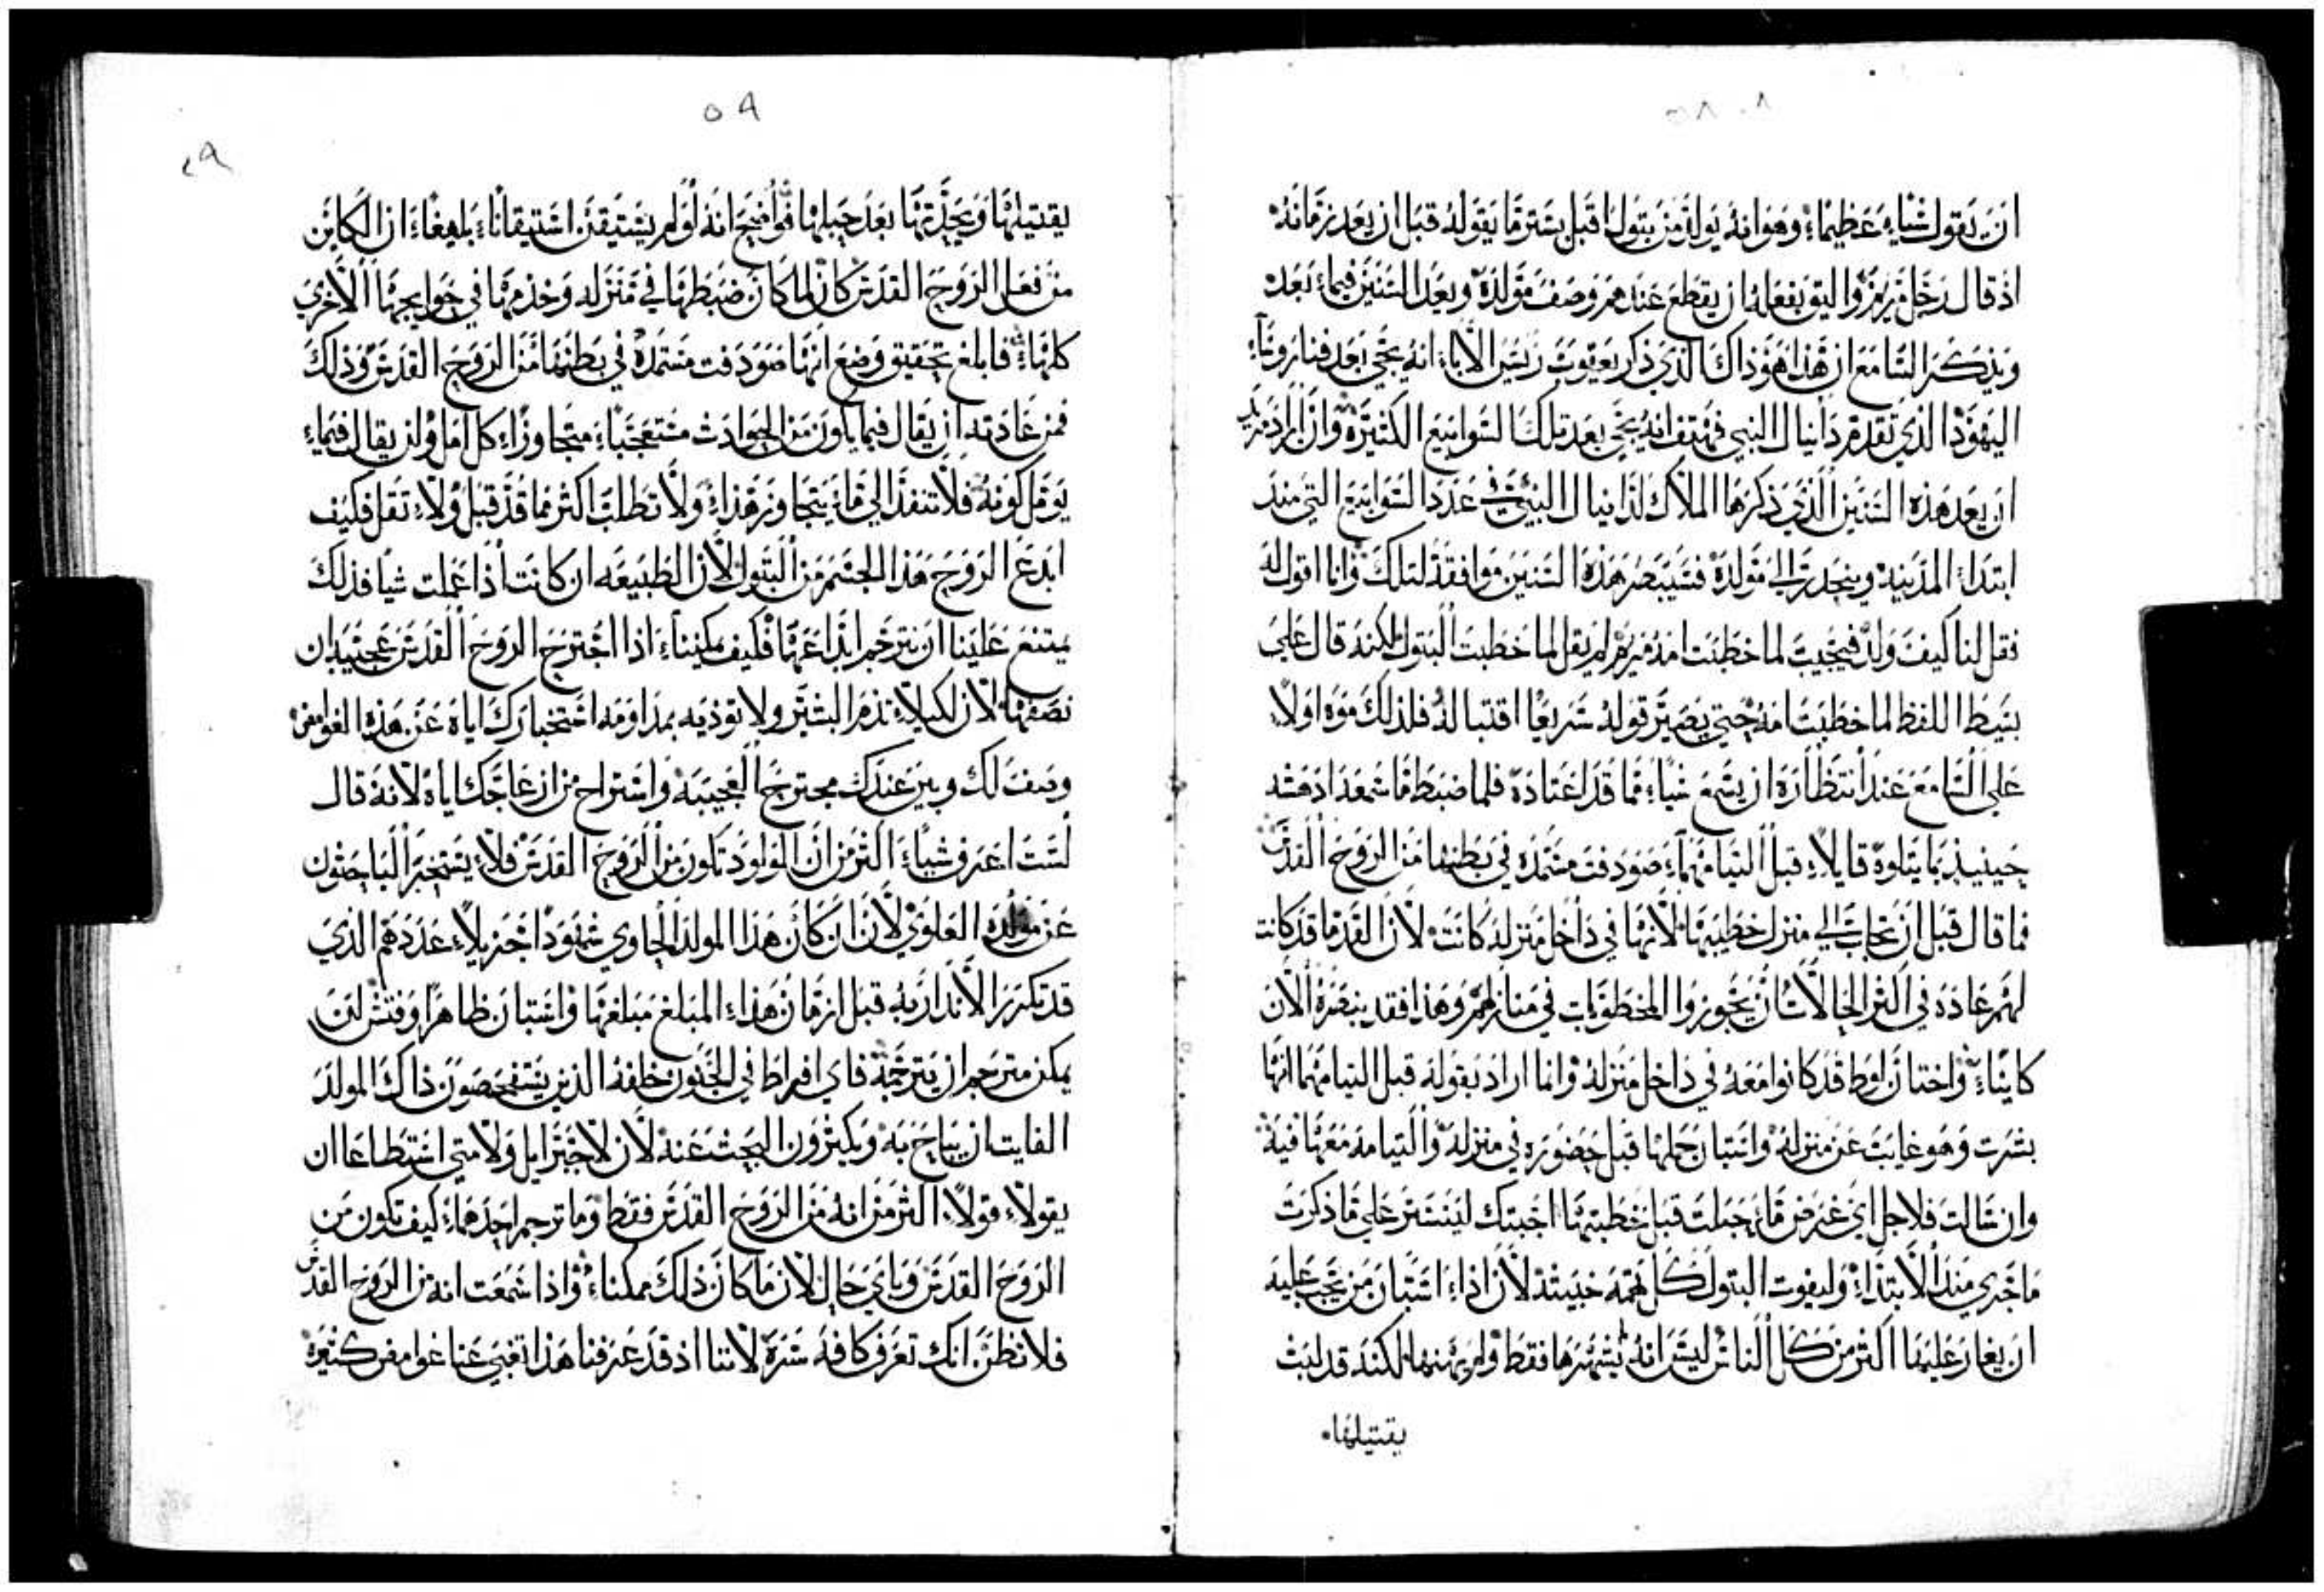 ٥٨
ان يقول شياء عظيماء وهو انه يولد من بتول اقبل يستر ما يقوله قبل ان يعد زمانه
اذ قال رجل مريم واليق بفعله ان يقطع عندهم وصف مولده ويعد السنين فيماء بعد
ويذكر السامع ان هذا هو ذاك الذي ذكر يعقوب ريس الاباء انه يجي بعد فنا روساء
اليهود الذي تقدم دانيال النبي فهتف انه يجي بعد تلك السوابيع الكثيرة وان اراد مريد
ان يعد هذه السنين الذي ذكرها الملاك لدانيال النبي في عدد السوابيع التي منذ
ابتداء المدينة وينحدر الي مولده فسيبصر هذه السنين موافقة لتلك وانا اقول له
فقل لنا كيف ولد فيجيب لما خطبت امه مريم لم يقل لما خطبت البتول لكنه قال علي
بسيط اللفظ لما خطبت امه حتي يصير قوله سريعا اقتباله فلذلك موه اولا
علي السامع عند انتظاره ان يسمع شياء مما قد اعتاده فلما ضبط ما سمعه ادهشه
حينيذ بما يتلوه قايلاء قبل التيامهماء صودفت مستمده في بطنها من الروح القدس
فما قال قبل ان تجاب الي منزل خطيبها لانها في داخل منزله كانت لان القدما قد كانت
لهم عاده في اكثر الحالات ان يحوزوا المخطوبات في منازلهم وهذا فقد يبصره الان
كايناء واختان لوط قد كانوا معه في داخل منزله وانما اراد بقوله قبل التيامهما انها
بشرت وهو غايب عن منزله واستبان حملها قبل حضوره في منزله والتيامه معها فيه
وان سالت فلاجل اي غرض ما حبلت قبل خطبتها اجبتك ليستتر علي ما ذكرت
ما جري منذ الابتداء وليفوت البتول كل تهمه خبيثه لان اذاء استبان من يجب عليه
ان يغار عليها اكثر من كل الناس ليس انه يشهرها فقط ولم يهنها لكنه قد لبث
يقتبلها
٥٩
٤٩
يقتبلها ويخدمها بعد حبلها فواضح انه لو لم يستيقن استيقاناء بليغاء ان الكاين
من فعل الروح القدس كان لما كان ضبطها في منزله وخدمها في حوايجها الاخري
كلهاء فابلغ تحقيق وضع انها صودفت مستمده في بطنها من الروح القدس وذلك
فمن عادته ان يقال فيما يكون من الحوادث مستعجباء متجاوزاء كل امل ولن يقال فيماء
يومل كونه فلا تنفذ الي ما يتجاوز هذاء ولا تطلب اكثر مما قد قبل ولاء تقل فكيف
ابدع الروح هذا الجسم من البتول لان الطبيعه ان كانت اذا عملت شيا فذلك
يمتنع علينا ان نترجم ابداعها فكيف يمكنناء اذا اجترح الروح القدس عجيبه ان
نصفها لان لكيلاء تذم البشير ولا توذيه بمداومه استخبارك اياه عن هذه الغوامض
وصف لك وبين عندك مجترح العجيبه واستراح من ازعاجك اياه لانه قال
لست اعرف شياء اكثر من ان المولود تكون من الروح القدس فلاء يستخبر الباحثون
عن مولده العلوي لان ان كان هذا المولد الحاوي شهودا جزيلاء عددهم الذي
قد تكرر الانذار به قبل ازمان هذاء المبلغ مبلغها واستبان ظاهرا وفتش لن
يمكن مترجم ان يترجمه فاي افراط في الجنون خلفه الذين يستفحصون ذاك المولد
الفايت ان يباح به ويكثرون البحث عنه لان لا جبرايل ولا متي استطاعا ان
يقولاء قولاء اكثر من انه من الروح القدس فقط وما ترجم احدهماء كيف تكون من
الروح القدس وباي حال لان ما كان ذلك ممكناء واذا سمعت انه من الروح القدس
فلا تظن انك تعرف كافه سره لاننا اذ قد عرفنا هذا تغبي عنا غوامض كثيره